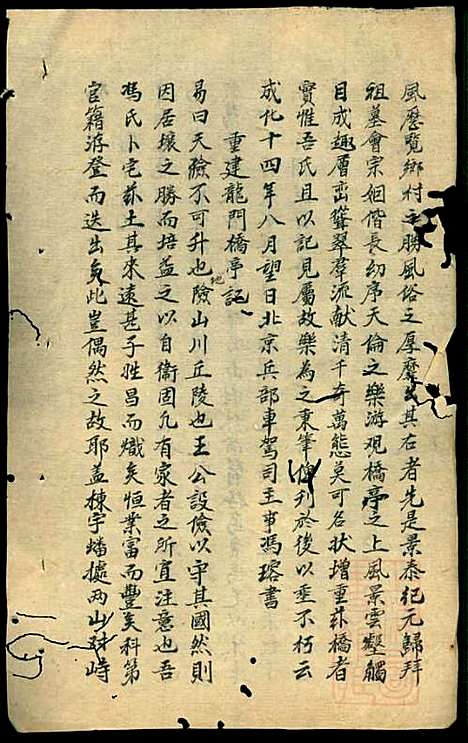 風歷覽鄉村之勝風俗之厚靡其右者先是景泰紀元歸拜
祖墓會宗姻偕長幼序天倫之樂游观橋亭之上風景雲壑觸
目成趣層峦聳翠群流献清千奇萬態莫可名状增重玆橋者
實惟吾氏且以記見屬故樂為之秉筆俾刋於後以垂不朽云
成化十四年八月望日北京兵部車駕司主事馮瑢書
重建龍門橋亭記
易曰天險不可升也地險山川丘陵也王公設儉以守其國然則
因居壤之勝而培益之以自衛固凢有家者之所宜注意也吾
馮氏卜宅玆土其來遠甚子姓昌而熾矣恒業富而豐矣科第
官籍游登而迭出矣此豈偶然之故耶盖棟宇蟠據两山对峙